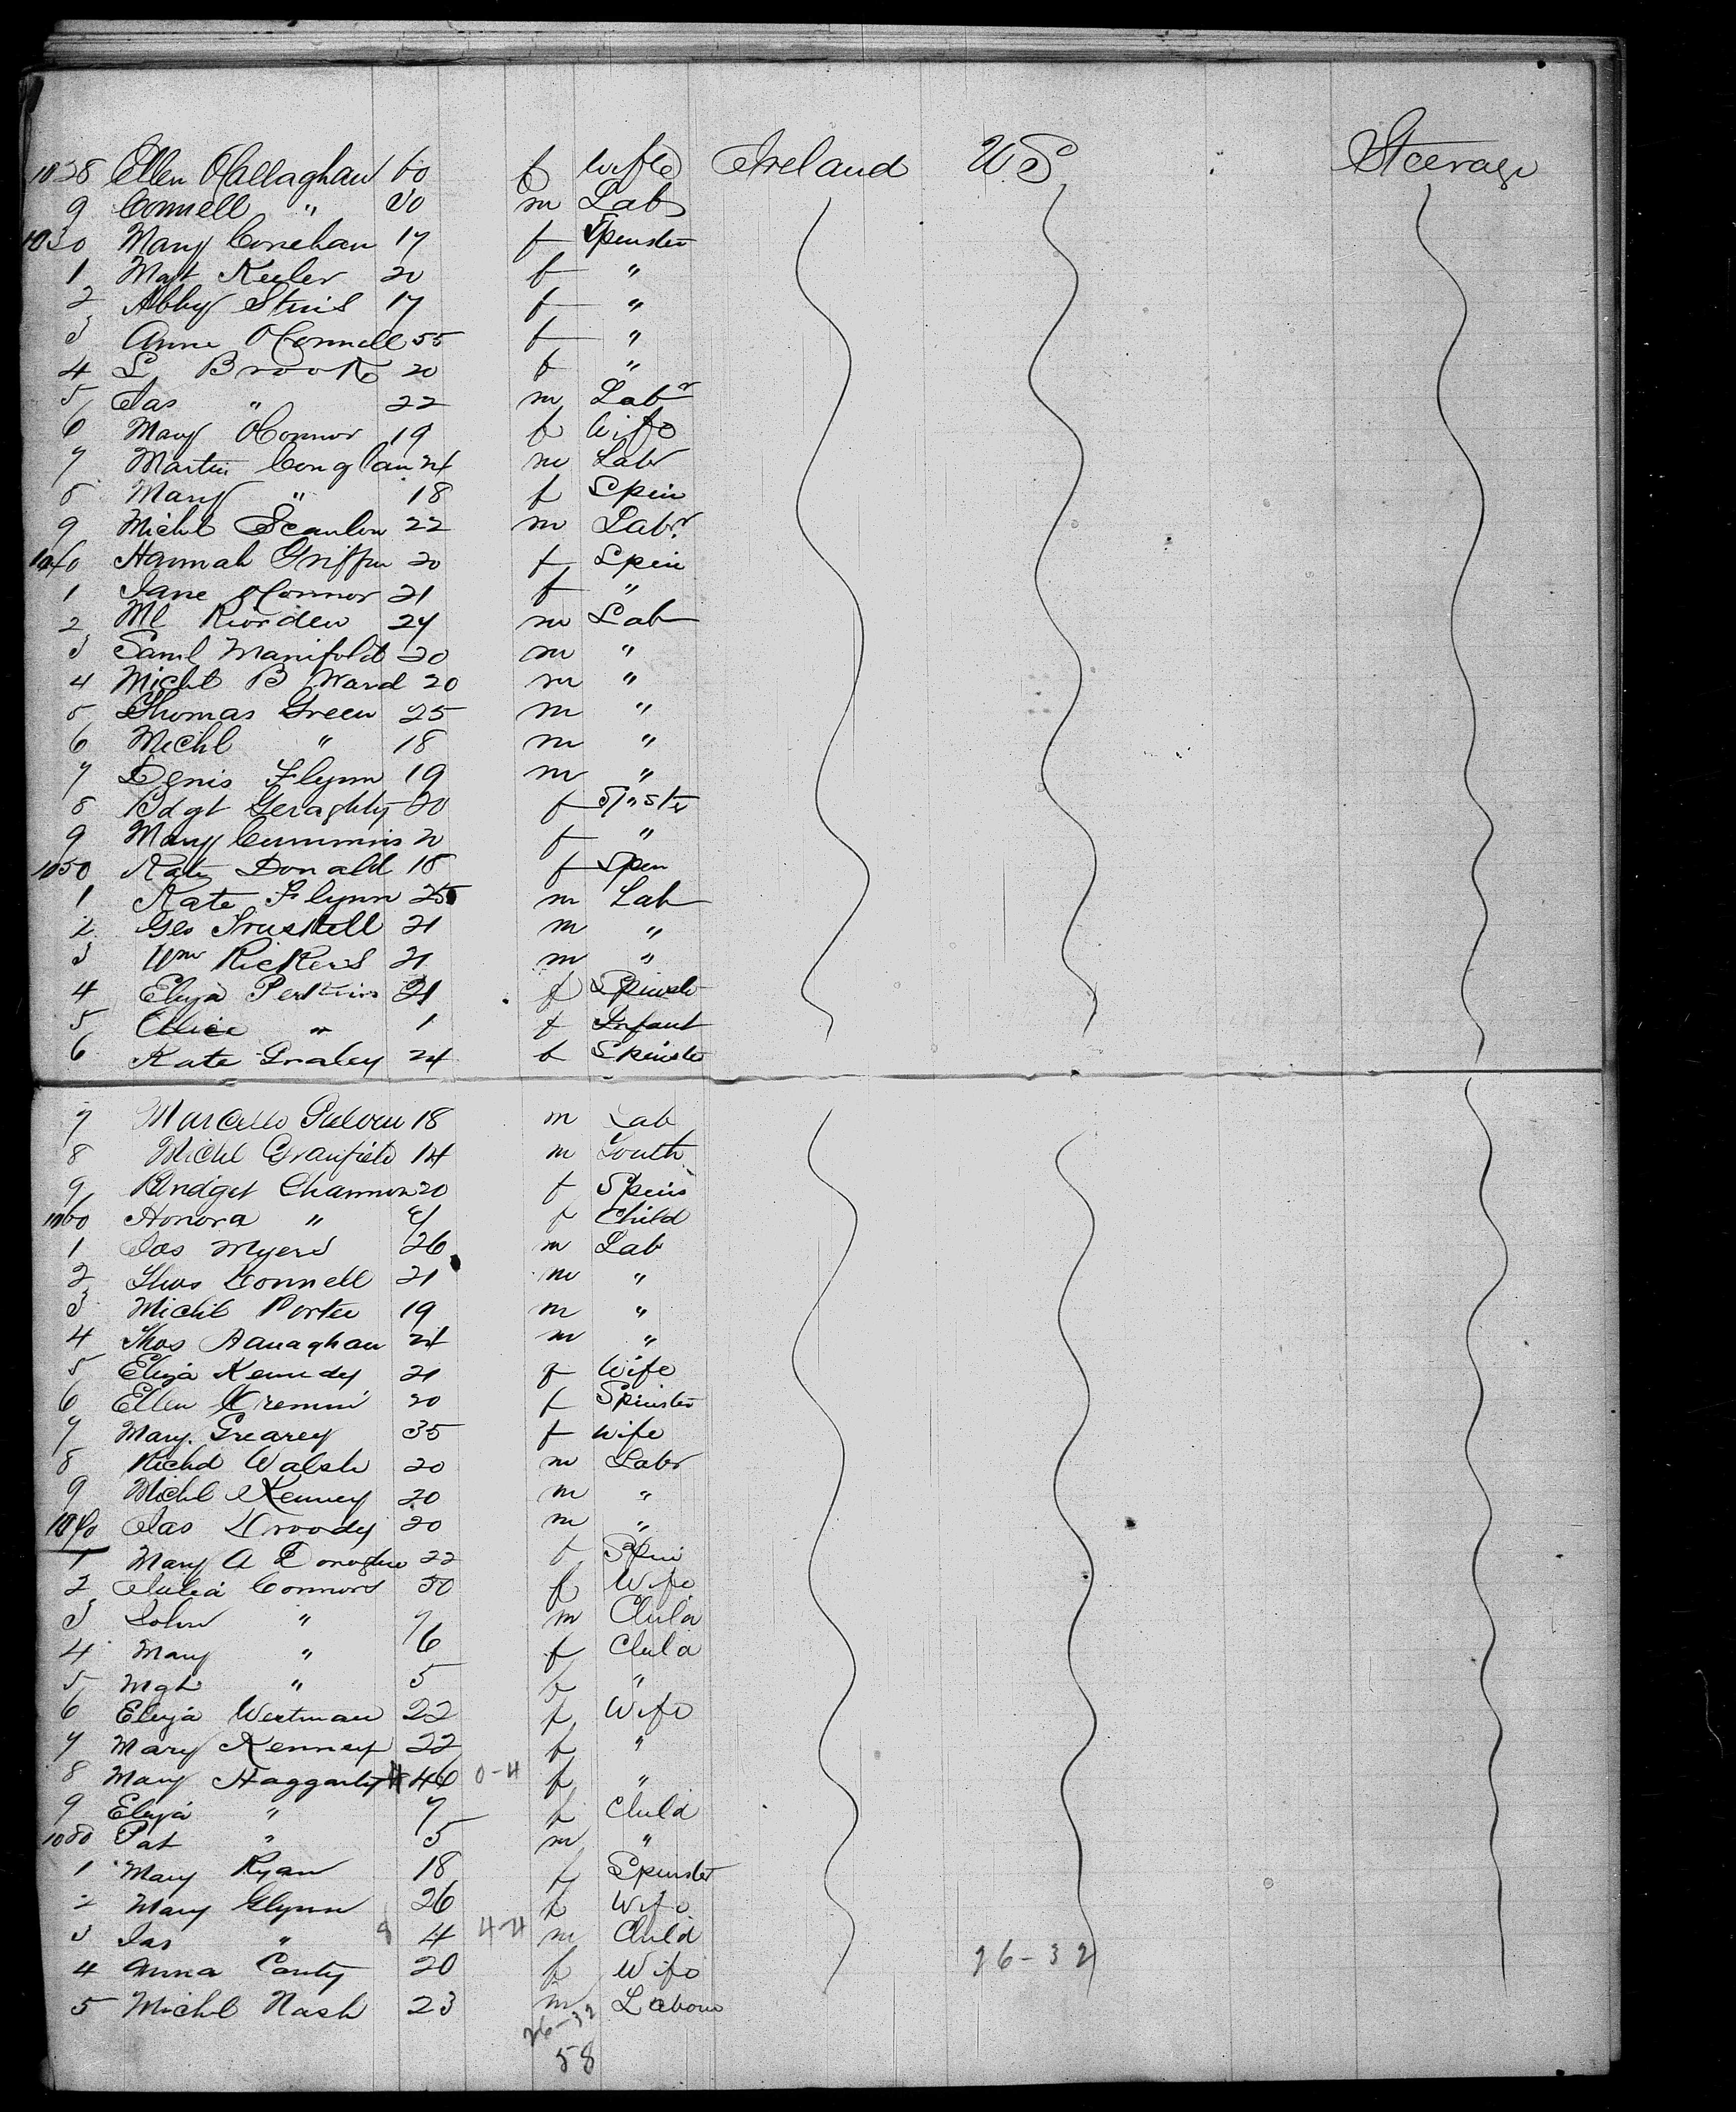 1028 Ellen O'Callaghan 60 f Wife Ireland US Steerage
9 Connell " 30 m Lab
1030 Mary 17 f Spinster
1 Mgt 20 f "
2 Abby 17 f "
3 Anne O'Connell 55 f "
4 S Brook 20 f "
5 Jas " 22 m Labr
6 Mary O'Connor 19 f Wife
7 Martin Conglan 24 m Labr
8 Mary " 18 f Spin
9 Michl Scanlon 22 m Labr
1040 Hannah Griffin 20 f Spin
1 Jane O'Connor 21 f "
2 Ml Riorden 24 m Lab
3 Saml Manifold 20 m "
4 Michl B Ward 20 m "
5 Thomas Green 25 m "
6 Michl " 18 m "
7 Denis Flynn 19 m "
8 Bdgt Geraghty 20 f
9 Mary Cummins 20 f "
1050 Kate Donald 18 f Spin
1 Kate Flynn 25 m Lab
2 Geo Truskell 21 m "
3 Wm Rickers 21 m "
4 Eliza Perkins 21 f Spinst
5 Alice " 1 f Infant
6 Kate Graley 24 f Spinster
7 Marcello 18 m Lab
8 Michl Granfield 14 m Youth
9 Bridget Channon 20 f Spins
1060 Honora " f Child
1 Jas Myers 26 m Lab
2 Thos Connell 21 m "
3 Michl Porter 19 m "
4 Thos 24 m "
5 Eliza Kennedy 21 f Wife
6 Ellen Cremin 20 f Spinster
7 Mary Grearey 35 f Wife
8 Richd Walsh 20 m Labr
9 Michl Kenney 20 m "
1070 Jas Droody 20 m "
1 Mary A Donoghue 22 f Spin
2 Julia Connors 30 f Wife
3 John " 7 m Child
4 Mary " 6 f Child
5 Mgt " 5 f "
6 Eliza Westman 22 f Wife
7 Mary Kenney 22 f "
8 Mary Haggarty 46 0-4 f "
9 Eliza " 7 f Child
1080 Pat " 5 m "
1 Mary Ryan 18 f Spinster
2 Mary Glynn 26 f Wife
3 Jas " 4 4-4 m Child
4 Anna Canty 20 f Wife 26-32
5 Michl Nash 23 m Labour
26-32
58